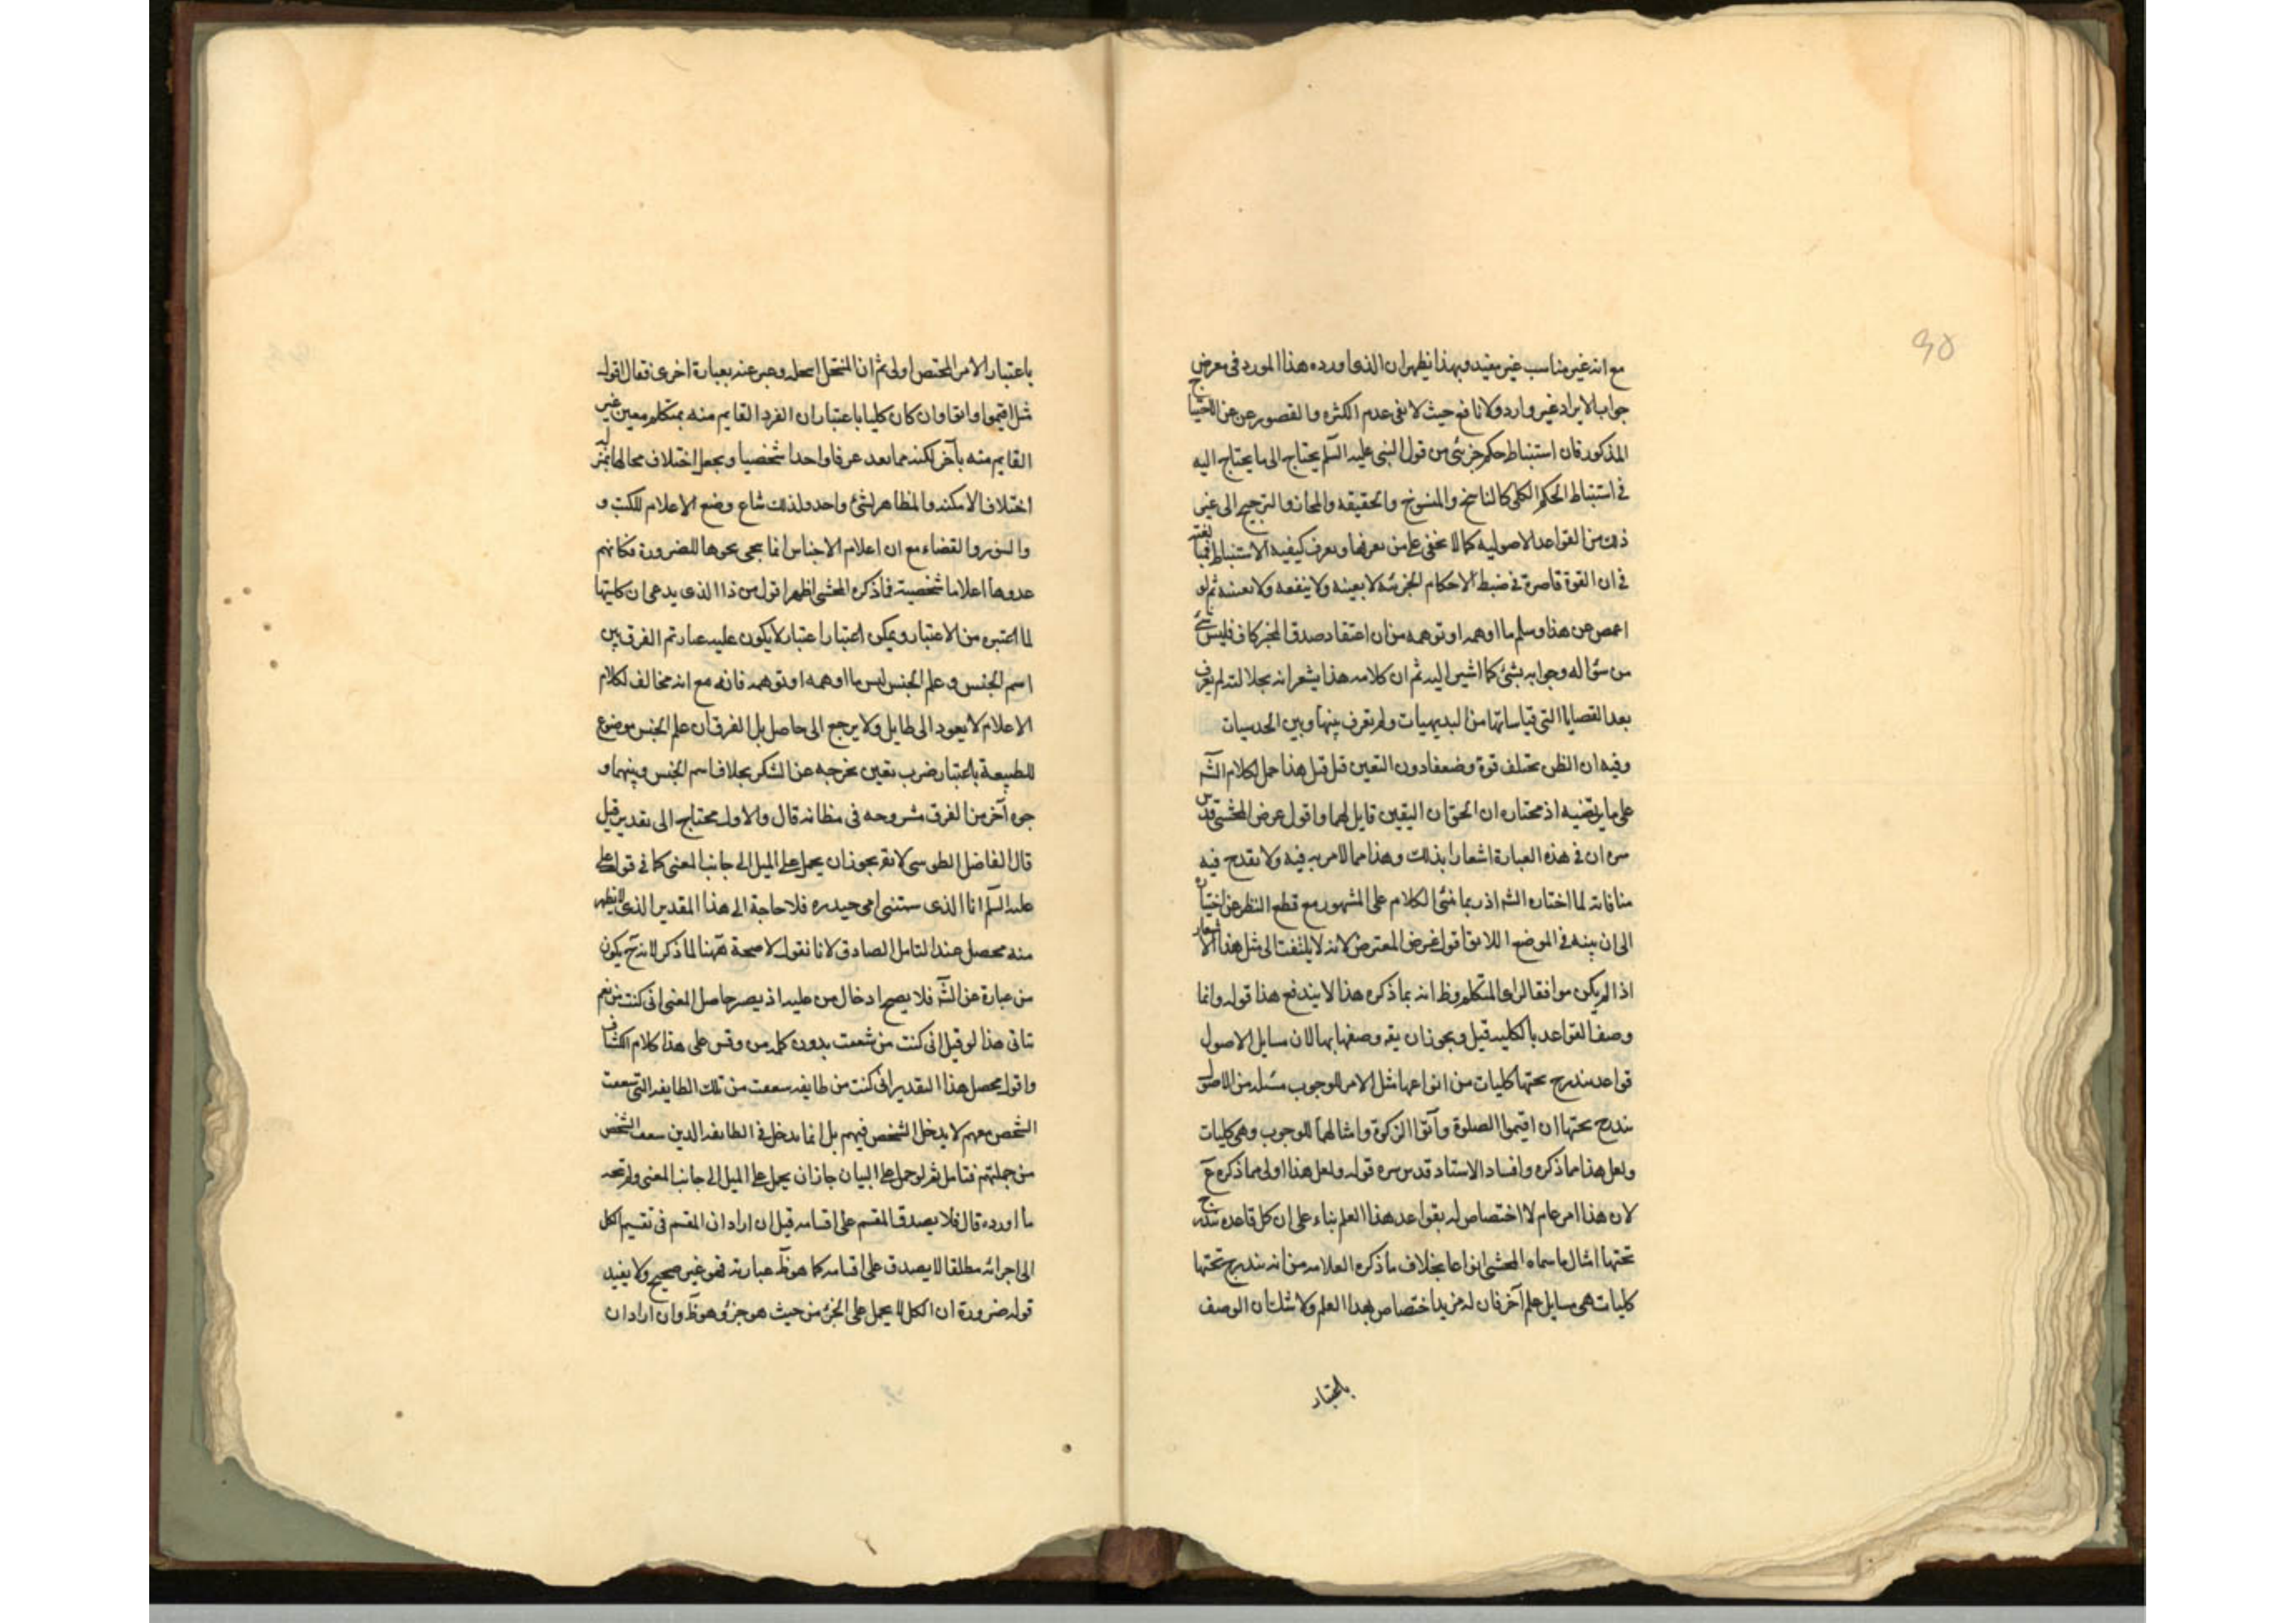 مع انه غير مناسب غير مفيد وبهذا يظهر ان الذى اورده هذا المورد فى معرض
جواب الايراد غير وارد ولا نافع حيث لا نفى عدم الكثره والقصور عن الاحتياج
المذكور فان استنباط حكم جزئى من قول النبى عليه السلم يحتاج الى ما يحتاج اليه
فى استنباط الحكم الكلى كالناسخ والمنسوخ والحقيقه والمجاز والترجيح الى غير
ذلك من القواعد الاصوليه كما لا يخفى على من يعرفها ويعرف كيفيه الاستنباط
فى ان القوة قاصرة فى ضبط الاحكام الجزئيه لا يعينه ولا ينفعه ولا ثم لو
اغمض عن هذا وسلم ما اوهمه او توهمه من ان اعتقاد صدق المخبر كاف فليس شئ
من سؤاله وجوابه بشئ كما اشير اليه ثم ان كلامه هذا يشعر انه بجلالته لم يعرف
بعد القضايا التى قياساتها من البديهيات ولم يعرف بينها وبين الحدسيات
وفيه ان الظن يختلف قوة وضعفا دون التعين قيل قبل هذا حمل لكلام الشه
على ما يرتضيه اذ مختاره ان الحق ان اليقين قابل لهما واقول غرض المحشى قدس
سره ان فى هذه العبارة اشعارا بذلك وهذا مما لا مريه فيه ولا يقدح فيه
منافاته لما اختاره الشه اذ ربما الكلام على المشهور مع قطع النظر عن اختياره
الى ان بينه فى الموضع اللايق اقول غرض المعترض لانه لا يلتفت الى مثل هذا الاشعار
اذا لم يكن موافقا لراى المتكلم وظ انه بما ذكره هذا لا يندفع هذا قوله وانما
وصف القواعد بالكليه قيل ويجوز ان يقه وصفها بها لان مسايل الاصول
قواعد يندرج تحتها كليات من انواعها مثل الامر للوجوب مسئله من الاصول
يندرج تحتها ان اقيموا الصلوة وآتوا الزكوة وامثالهما للوجوب وهى كليات
ولعل هذا مما ذكره وافساد الاستاد قدس سره قوله ولعل هذا اولى مما ذكره
لان هذا امر عام لا اختصاص له بقواعد هذا العلم بناء على ان كل قاعده يندرج
تحتها امثال ما سماه المحشى انواعا بخلاف ما ذكره العلامه من انه يندرج تحتها
كليات هى مسايل علم آخر فان له مزيد اختصاص بهذا العلم ولا شك ان الوصف
باعتبار
باعتبار الامر المختص اولى ثم ان المنتحل وعبر عنه بعبارة اخرى فقال القول
مثل اقيموا واتقوا وان كان كليا باعتبار ان الفرد القايم منه بمتكلم معين غير
القايم منه بآخر لكنه مما يعد عرفا واحدا شخصيا ويجعل اختلاف محالها بمنزلة
اختلاف الامكنه والمظاهر لشئ واحد ولذلك شاع وضع الاعلام للكتب و
والسور والقضاء مع ان اعلام الاجناس انما يجى نحوها للضرورة فكانهم
عدوها اعلاما شخصية فاذكره المحشى اظهر اقول من ذا الذى يدعى ان كليتها
لما اعتبره من الاعتبار ويمكن اعتبار اعتبار لا يكون عليه غبار ثم الفرق بين
اسم الجنس وعلم الجنس ليس ما اوهمه او توهمه فانه مع انه مخالف لكلام
الاعلام لا يعود الى طايل ولا يرجع الى حاصل بل الفرق ان علم الجنس موضوع
للطبيعة باعتبار ضرب تعين يخرجه عن الشكر بخلاف اسم الجنس وبينهما و
جوه آخر من الفرق مشروحه فى مظانه قال والاول محتاج الى تقدير قيل
قال الفاضل الطوسى لا يقه يجوز ان يحمل على الميل الى جانب المعنى كما فى قول على
عليه السلم انا الذى سمتنى امى حيدره فلا حاجة الى هذا المقدير الذى لا يظهر
منه محصل عند التامل الصادق لانا نقول لا صحة ههنا لما ذكر لانه ح يكون
من عبارة عن الشه فلا يصح ادخال من عليه اذ يصير حاصل المعنى انى كنت من نعم
يتاتى هذا لو قيل انى كنت من شغفت بدون كلمه من وقس على هذا كلام الكشاف
واقول محصل هذا التقدير انى كنت من طايفه سععت من تلك الطايفه التى سععت
الشخص معهم لا يدخل الشخص فيهم بل انما يدخل فى الطايفه الذين سعف الشخص
من جملتهم فتامل ثم لو حمل على البيان جاز ان يحمل على الميل الى جانب المعنى ولم يتجه
ما اورده قال فلا يصدق المقسم على اقسامه قيل ان اراد ان المقسم فى تقسيم الكل
الى اجزائه مطلقا لا يصدق على اقسامه كما هو ظ عبارته فهو غير صحيح ولا يفيد
قوله ضرورة ان الكل لا يحمل على الجزء من حيث هو جزؤ وهو ظ وان اراد ان